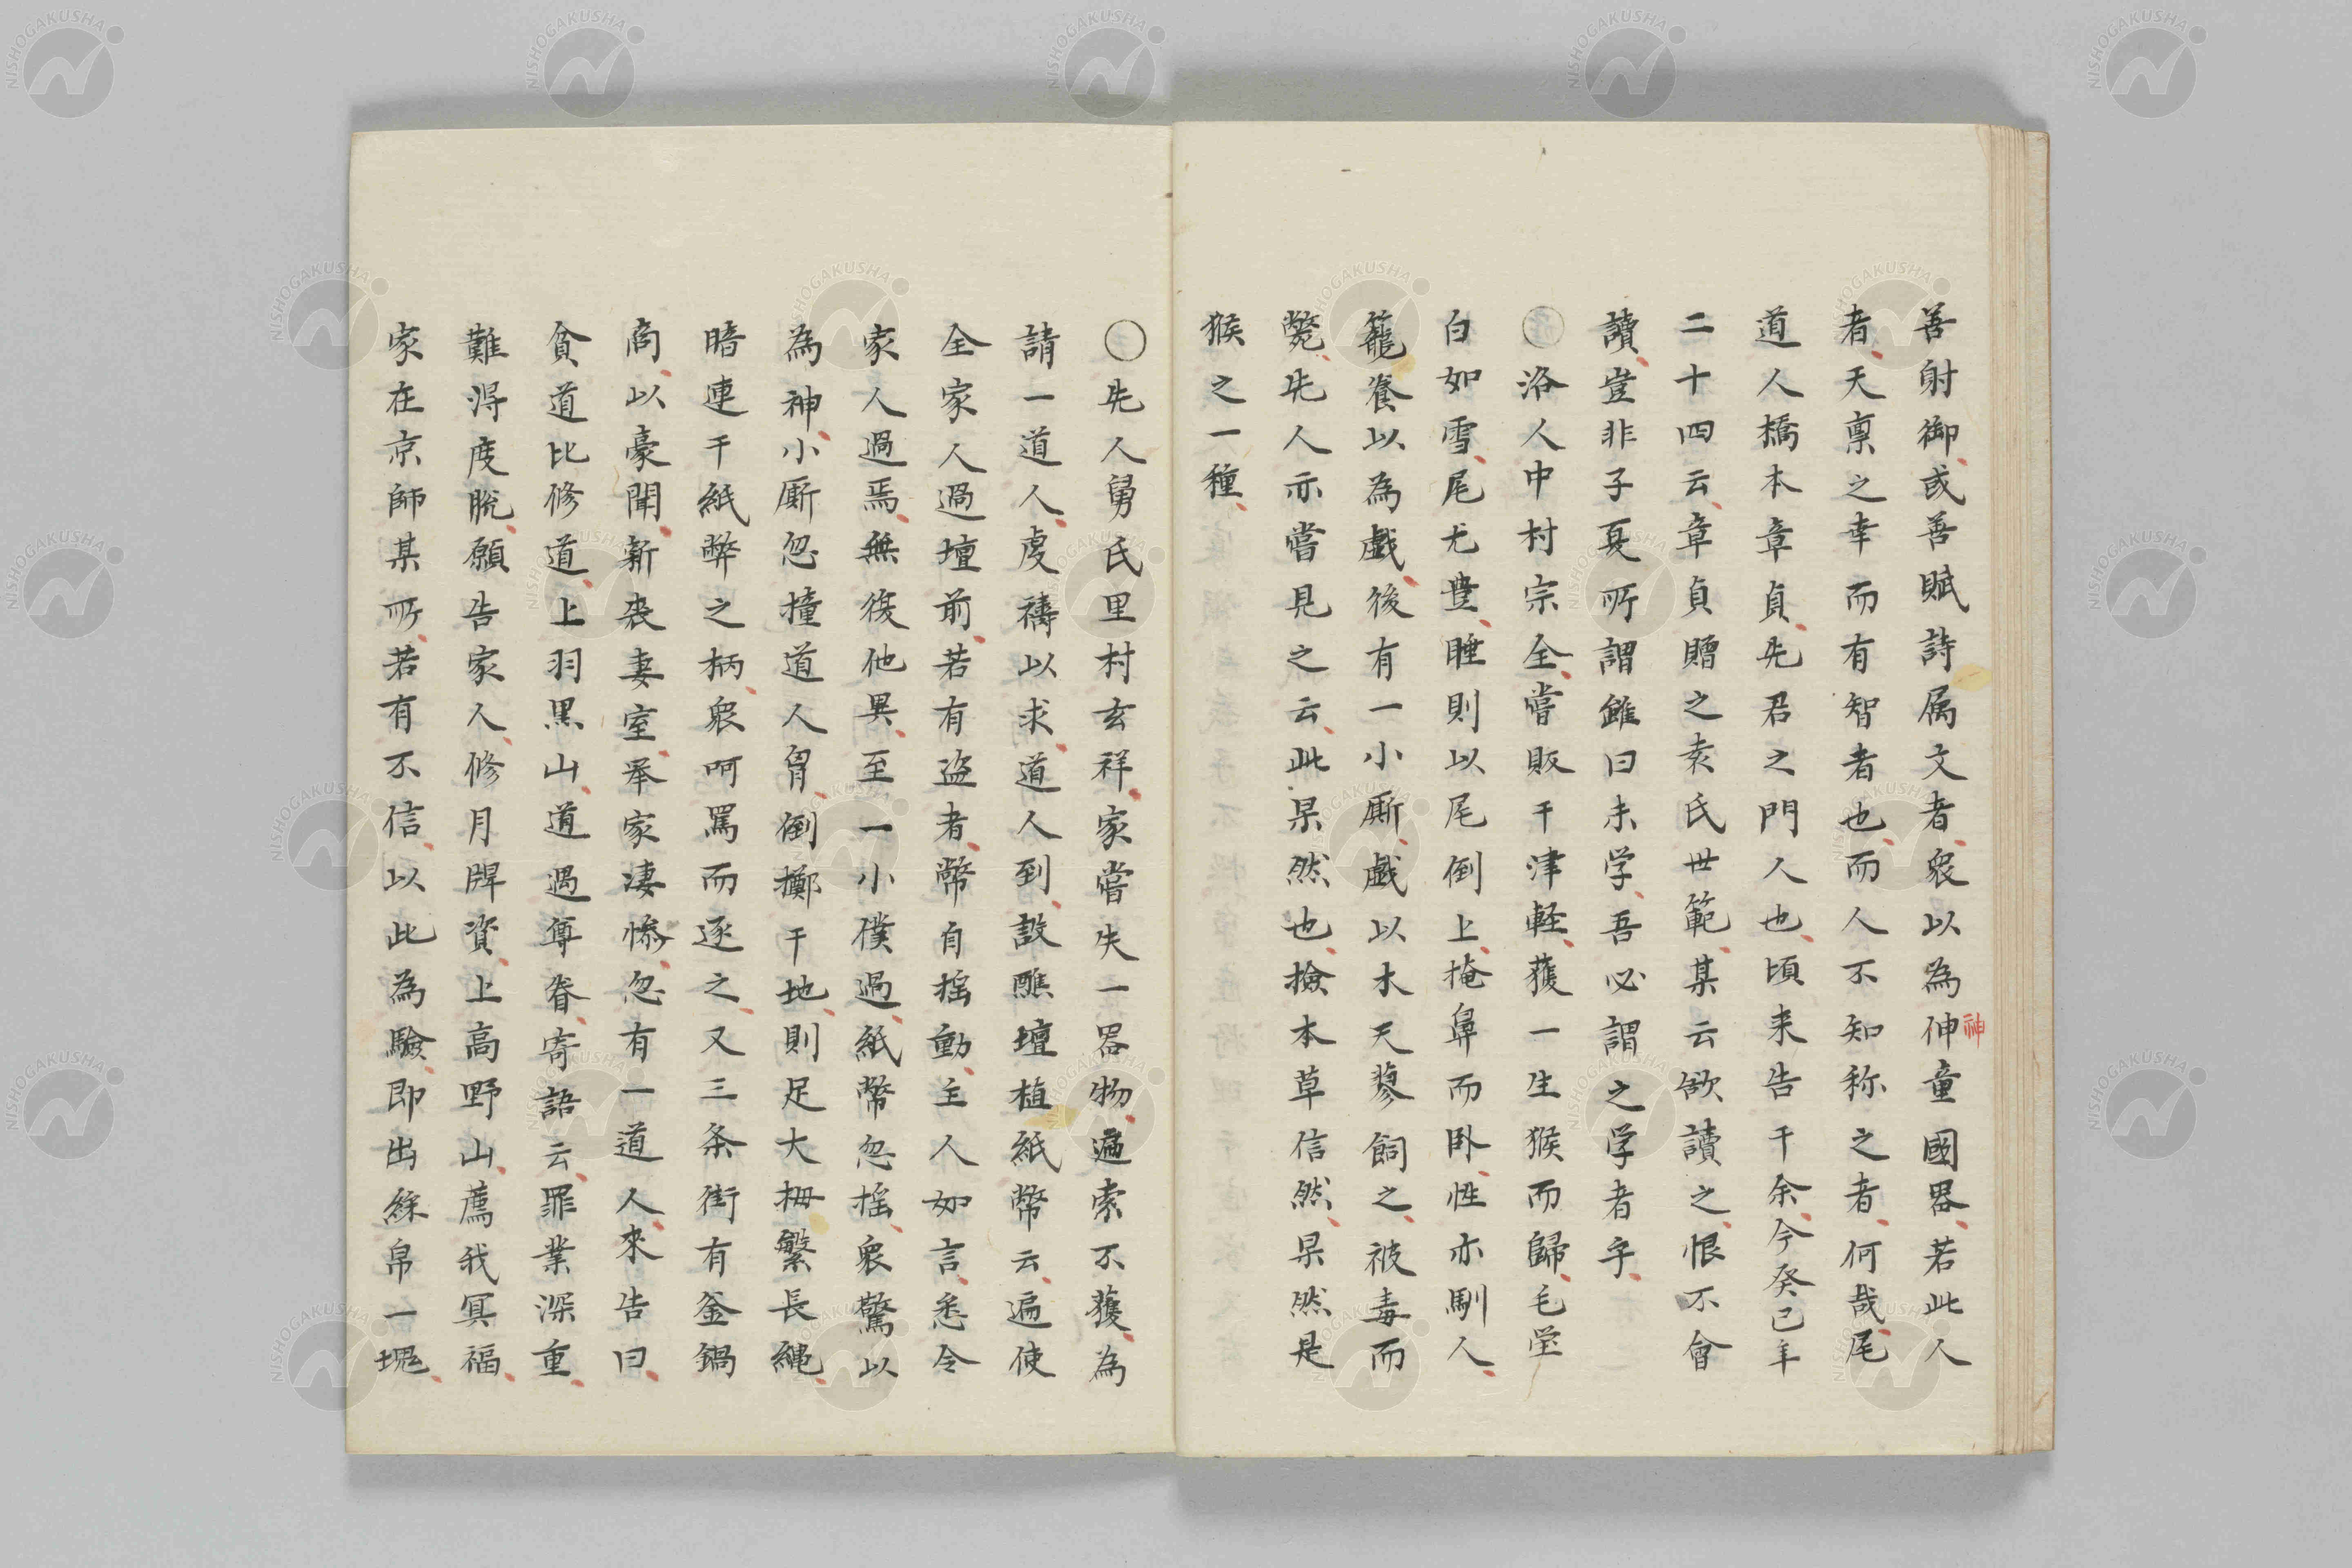 善射御或善賦詩属文者衆以為伸童國器若此人
神
者天禀之幸而有智者也而人不知称之者何哉尾
道人橋本章貞先君之門人也頃来告于余今癸巳年
二十四云章貞贈之袁氏世範某云欲讀之恨不會
讀豈非子夏所謂雖曰未学吾必謂之学者乎
○洛人中村宗全嘗販于津軽獲一生猴而歸毛瑩
白如雪尾尤豊睡則以尾倒上掩鼻而卧性亦馴人
籠養以為戯後有一小厮戯以木天蓼飼之被毒而
斃先人亦嘗見之云此果然也撿本草信然果然是
猴之一種
○先人舅氏里村玄祥家嘗失一器物遍索不獲為
請一道人虔禱以求道人到設醮壇植紙幣云遍使
全家人過壇前若有盗者幣自揺動主人如言悉令
家人過焉無復他異至一小僕過紙幣忽揺衆驚以
為神小厮忽撞道人胷倒擲于地則足大拇繫長縄
暗連于紙幣之柄衆呵罵而逐之又三条街有釜鍋
商以豪聞新喪妻室挙家凄惨忽有一道人來告曰
貧道比修道上羽黒山道遇尊眷寄語云罪業深重
難得度脱願告家人修月牌資上高野山薦我冥福
家在京師某所若有不信以此為驗即出綵帛一塊